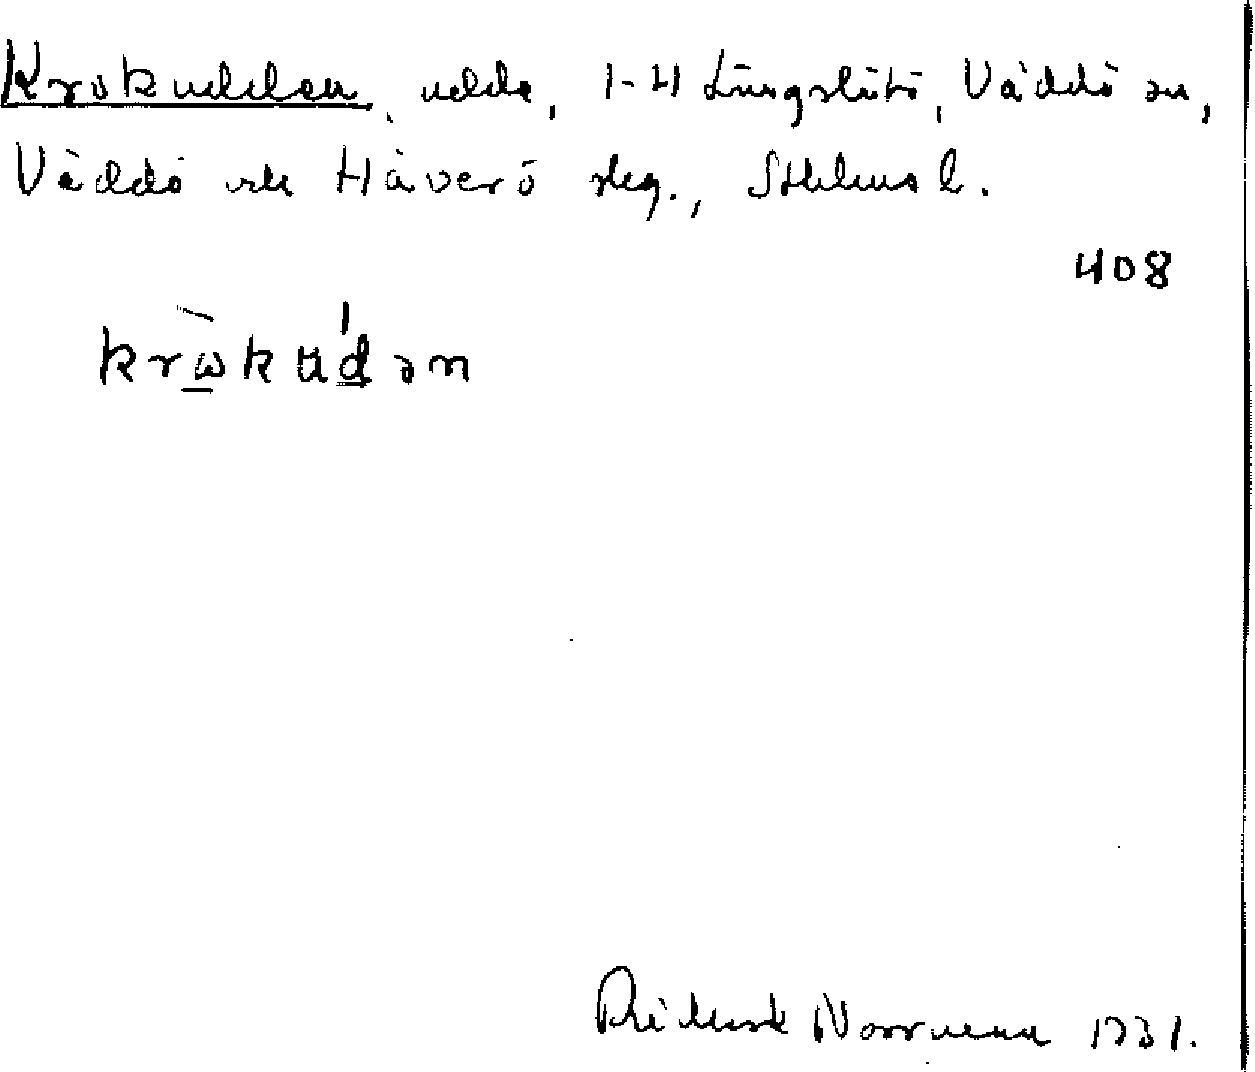 Krokudden, udde, 1-4 Ljungslätt, Väddö sn,
Väddö och Häverö skg., Sthlms l.
408
kr​ωkudən
Rickard Norrman 1931.